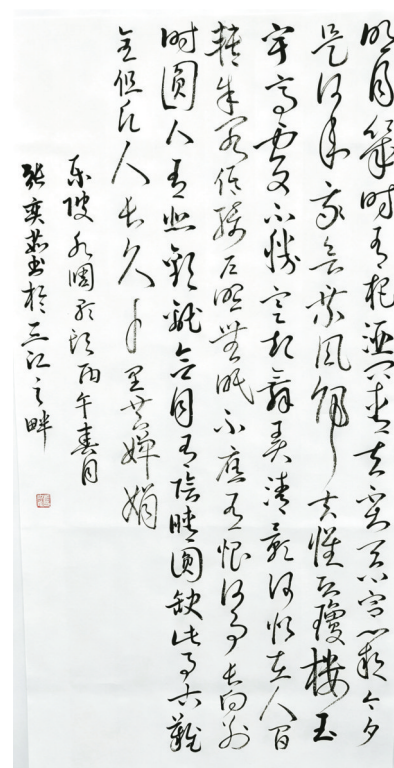 明月幾时有把酒问青天不知天上宫阙今夕
是何年我欲乘风歸去惟恐瓊楼玉
宇高处不勝寒起舞弄清影何似在人间
轉朱阁低绮户照無眠不應有恨何事長向别
时圆人有悲歡離合月有陰晴圆缺此事古難
全但愿人長久千里共嬋娟
东坡水调歌头丙午春月
张奕书於三江之畔